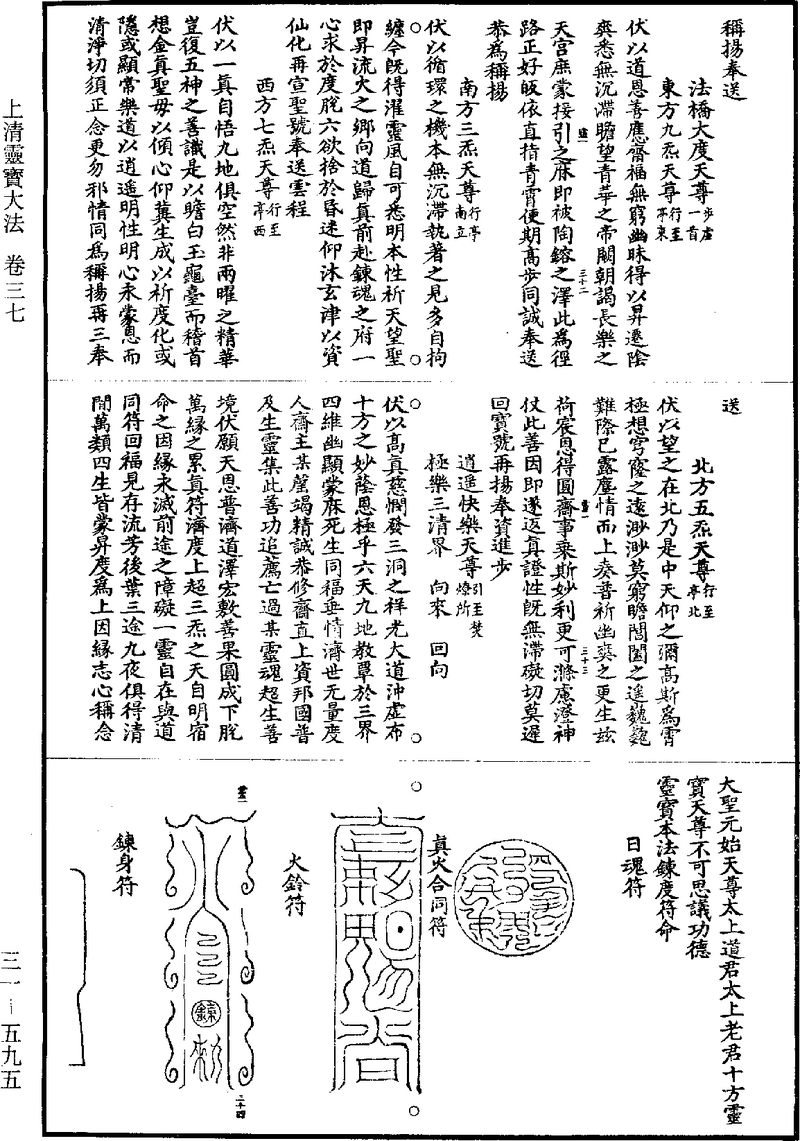 稱揚奉送
法橋大度天尊步虛一首
東方九炁天尊行至亭東
伏以道恩善應齋福無窮幽昧得以昇遷陰
爽悉無沉滯瞻望青華之帝闕朝謁長樂之
天宮庶蒙接引之庥即被陶鎔之澤此為徑
路正好皈依直指青霄便期高步同誠奉送
恭為稱揚
南方三炁天尊行亭南立
伏以循環之機本無沉滯執著之見多自拘
纏今既得濯靈風自可悉明本性祈天望聖
即昇流火之鄉向道歸真前赴鍊魂之府一
心求於度脫六欲捨於昏迷仰沐玄津以資
仙化再宣聖號奉送雲程
西方七炁天尊行至亭西
伏以一真自悟九地俱空然非兩曜之精華
豈復五神之善識是以瞻白玉龜臺而稽首
想金真聖母以傾心仰冀生成以祈度化或
隱或顯常樂道以逍遙明性明心永蒙恩而
清淨切須正念更勿邪情同為稱揚再三奉
送
北方五炁天尊行至亭北
伏以望之在北乃是中天仰之彌高斯為霄
極想穹窿之遠渺渺莫窮瞻閶闔之遙巍巍
難際已露塵情而上奏普祈幽爽之更生玆
荷宸恩得圓齋事乘斯妙利更可滌慮澄神
仗此善因即遂返真證性既無滯礙切莫遲
回寶號再揚奉資進步
逍遙快樂天尊引至焚燎所
極樂三清界　向來　回向
伏以高真慈憫發三洞之祥光大道沖虛布
十方之妙蔭恩極乎六天九地教覃於三界
四維幽顯蒙庥死生同福垂情濟世无量度
人齋主某罄竭精誠恭修齋直上資邦國普
及生靈集此善功追薦亡過某靈魂超生善
境伏願天恩普濟道澤宏敷善果圓成下脫
萬緣之累真符濟度上超三炁之天自明宿
命之因緣永滅前途之障礙一靈自在與道
同符回福見存流芳後葉三途九夜俱得清
閒萬類四生皆蒙昇度為上因緣志心稱念
大聖元始天尊太上道君太上老君十方靈
寶天尊不可思議功德
靈寶本法鍊度符命
日魂符
真火合同符
火鈴符
鍊身符
上清靈寶大法　卷三七
三一—五九五
三十二
三十三
三十四